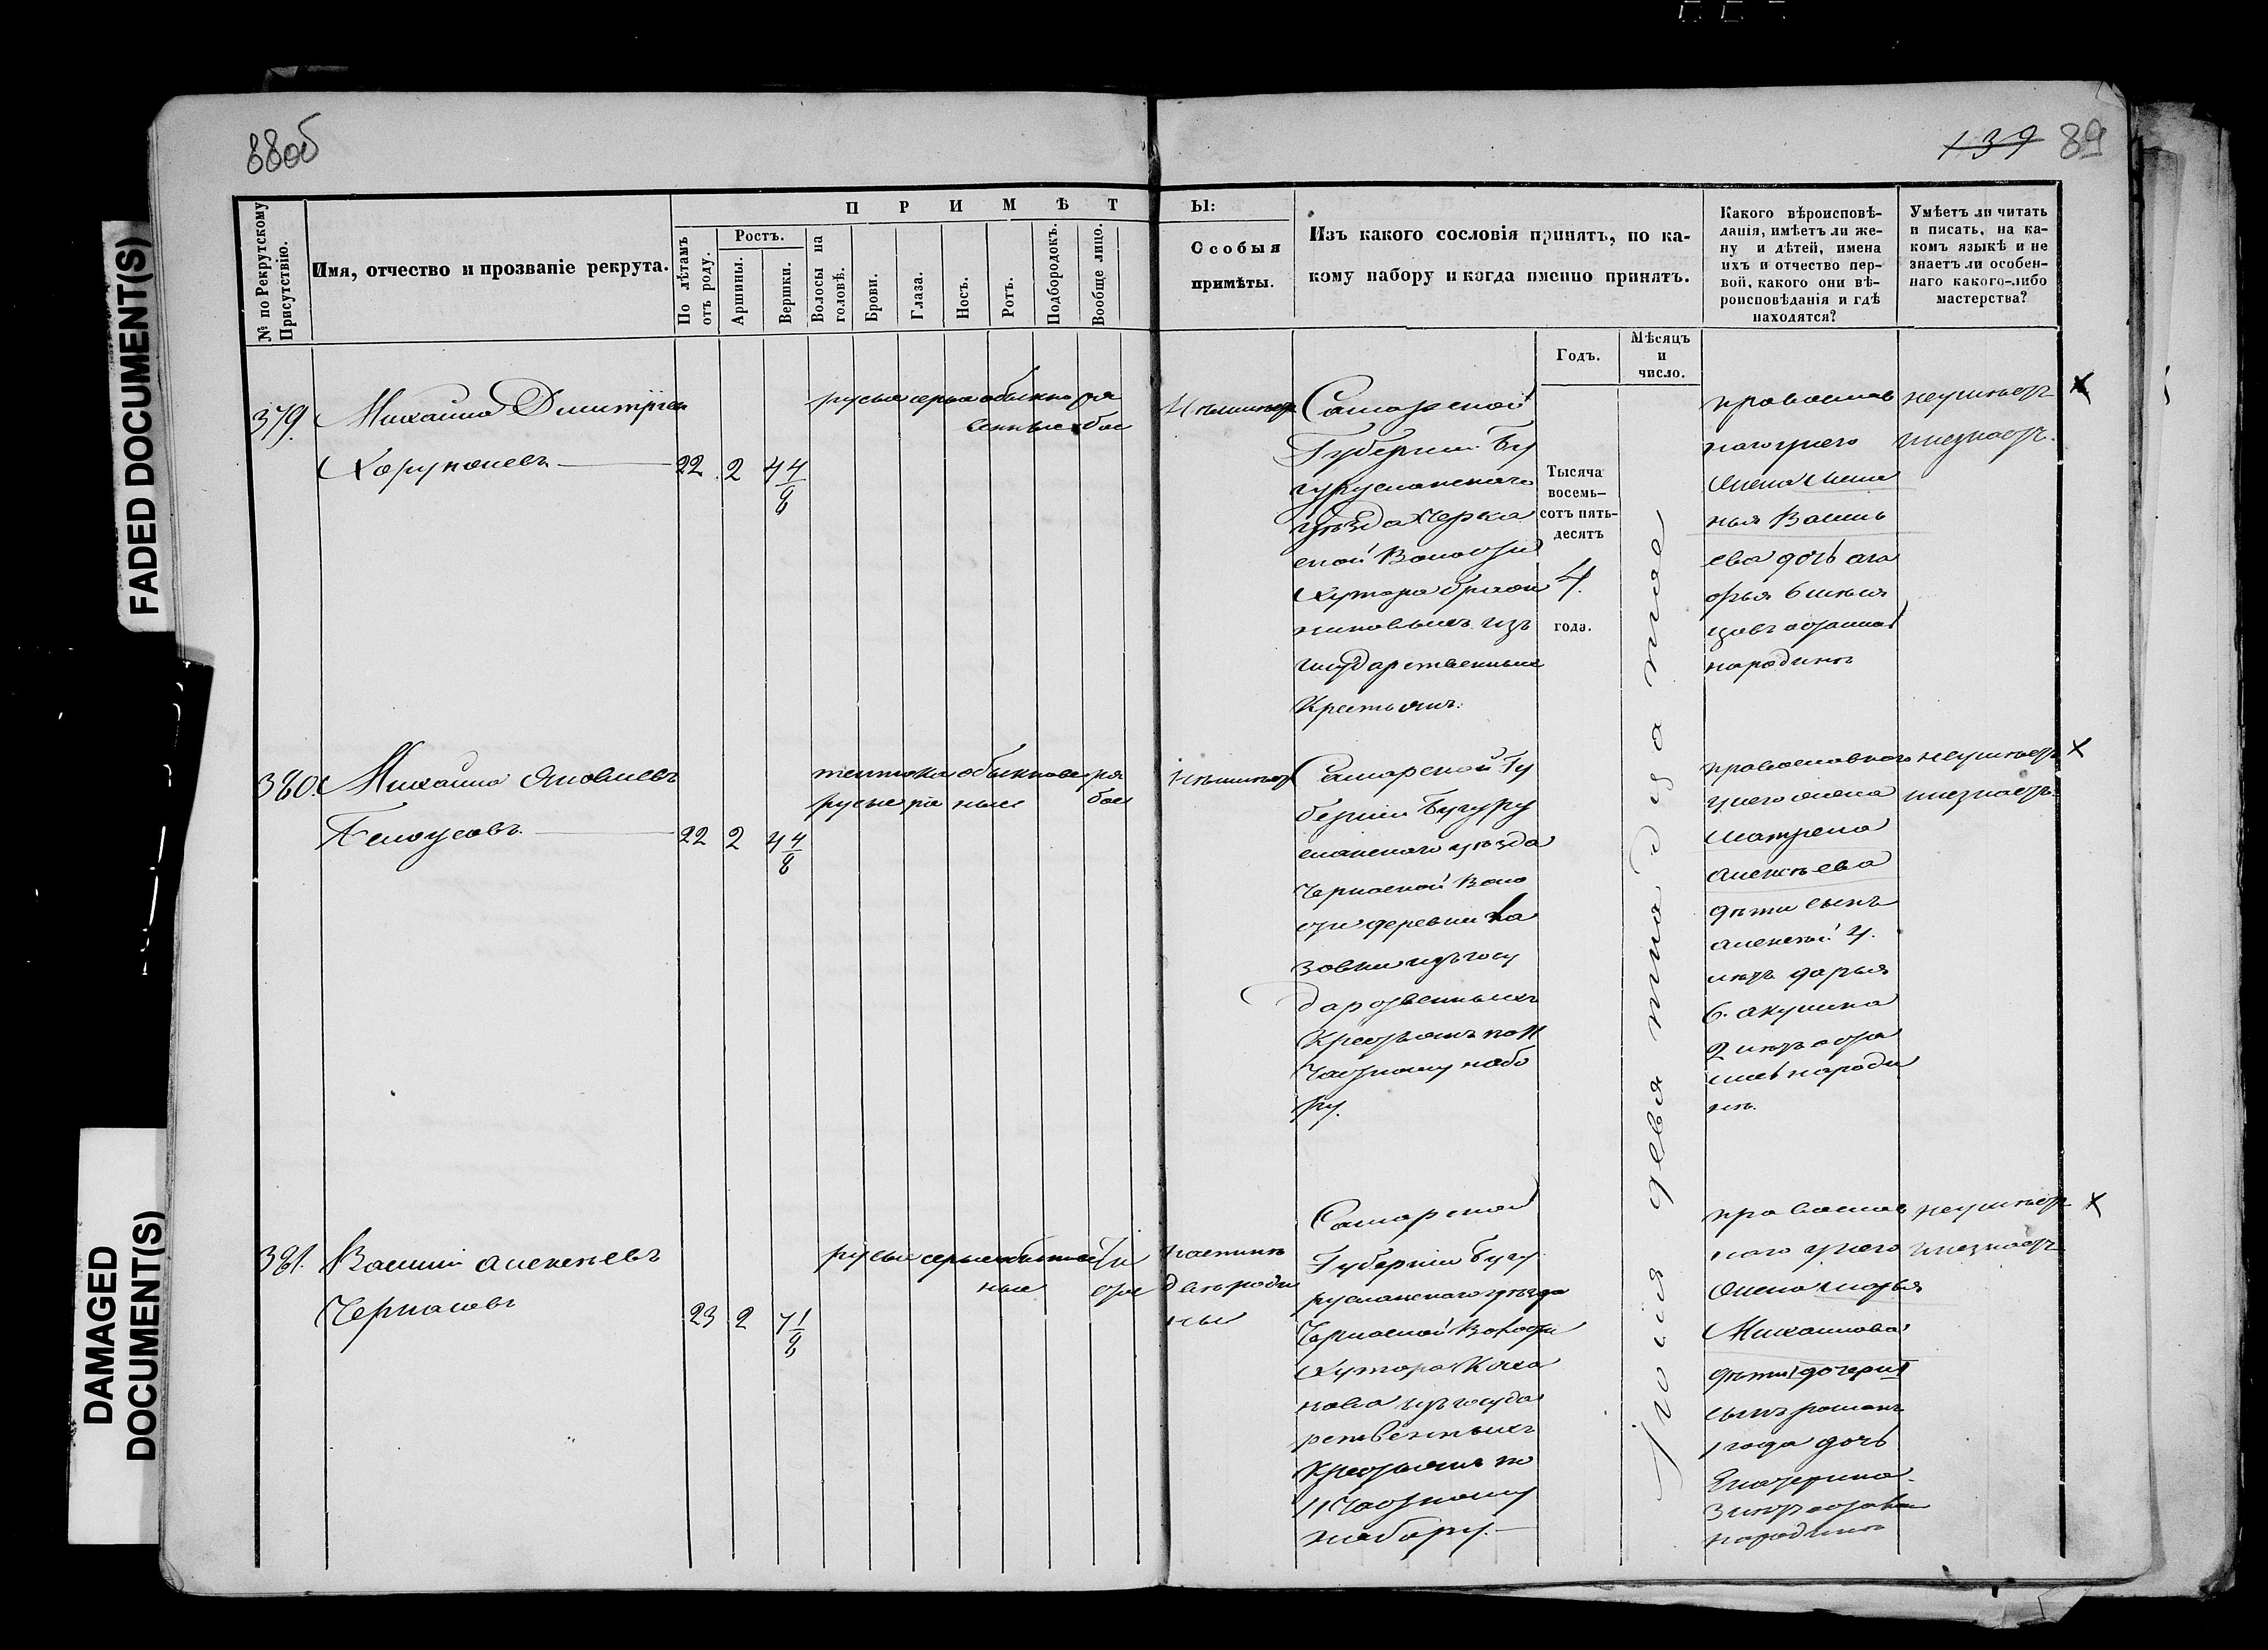 88об
139 89
FADED DOCUMENT(S)
DAMAGED
DOCUMENT(S)
№ по Рекрутскому
Присутствію.
Имя, отчество и прозваніе рекрута.
ПРИМѢТ
Ы:
По лѣтамъ
отъ роду.
Ростъ.
Аршины.
Вершки.
Волосы на
головѣ.
Брови.
Глаза.
Носъ.
Ротъ.
Подбородокъ.
Вообще лицо.
Особыя
примѣты.
Изъ какого сословія принятъ, по ка-
кому набору и когда именно принятъ.
Годъ.
Мѣсяцъ
и
число.
Какого вѣроисповѣ-
данія, имѣетъ ли же-
ну и дѣтей, имена
ихъ и отчество пер-
вой, какого они вѣ-
роисповѣданія и гдѣ
находятся?
Умѣетъ ли читать
и писать, на ка-
комъ языкѣ и не
знаетъ ли особен-
наго какого-либо
мастерства?
379. Михайло Дмитріев
22 2 4 4/8
русые серые обыкно ря
венные бое
Неимеет
Самарской
Губернии Бу
гурусланскаго
уѣзда Черка
ской Волости
Хутора
изъ
государственных
Крестьянъ.
Тысяча
восемь-
сотъ пять-
десятъ
4.
года.
Іюля девятнадцатое
православ
наго унего
жена
нья Василь
ева дочь ага
фья 6 месяцовъ
осталась
народинѣ
неумѣетъ
инезнаетъ.
380. Михайло Яковлевъ
Белоусовъ 22 2 4 4/8
темно обыкновен ря
русые ные бое
Неимеет
Самарской Гу
берніи Бугуру
сланскаго уѣзда
Черкаской Воло
сти деревни Ка
зовки изъ госу
дарственныхъ
Крестьянъ по 11
Частному набо
ру.
православнаго
унего жена
Матрена
Алексѣева
дѣти сынъ
Алексѣй 4.
лѣтъ дарья
6. акулина
2 лѣтъ оста
лись народи
нѣ.
неумѣетъ
инезнаетъ.
381. Василий Алексѣевъ
Черкасовъ 23 2 4 1/8
русые серые обыкновен чи
ные стое
Самарской
Губерніи Бугу
русланскаго уѣзда
Черкаской Волости
Хутора
изъ госуда
рственныхъ
Крестьянъ по
11 Частному
набору.
православ
наго унего
жена марья
Михайлова
дѣти
сынъ романъ
1 года дочь
Екатерина
3 лѣтъ
народинѣ
неумѣетъ
инезнаетъ